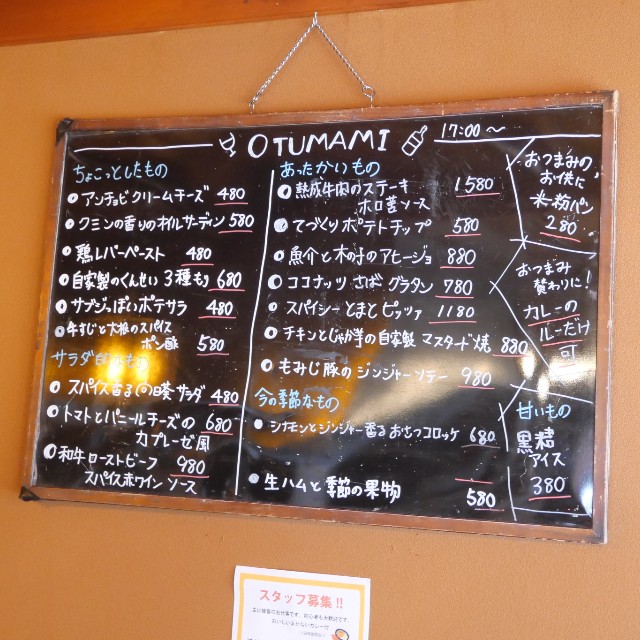 OTUMAMI 17:00～
ちょこっとしたもの
アンチョビクリームチーズ 480
クミンの香りのオイルサーディン 580
鶏レバーペースト 480
自家製のくんせい 3種もり 680
サブジっぽいポテサラ 480
牛すじと大根のスパイス
ポン酢 580
サラダ的なもの
スパイス香る サラダ 480
トマトとパニールチーズの 680
カプレーゼ風
和牛ローストビーフ 980
スパイス赤ワインソース
あったかいもの
熟成牛肉のステーキ 1580
ホロ苦ソース
てづくりポテトチップ 580
魚介と木の子のアヒージョ 880
ココナッツ さば グラタン 780
スパイシーとまとピッツァ 1180
チキンとじゃが芋の自家製 マスタード焼 880
もみじ豚のジンジャーソテー 980
今の季節なもの
シナモンとジンジャー香るおさつコロッケ 680
生ハムと季節の果物 580
おつまみの
お供に
米粉パン
280
おつまみ
替わりに!
カレーの
ルーだけ
可
甘いもの
黒糖
アイス
380
スタッフ募集!!